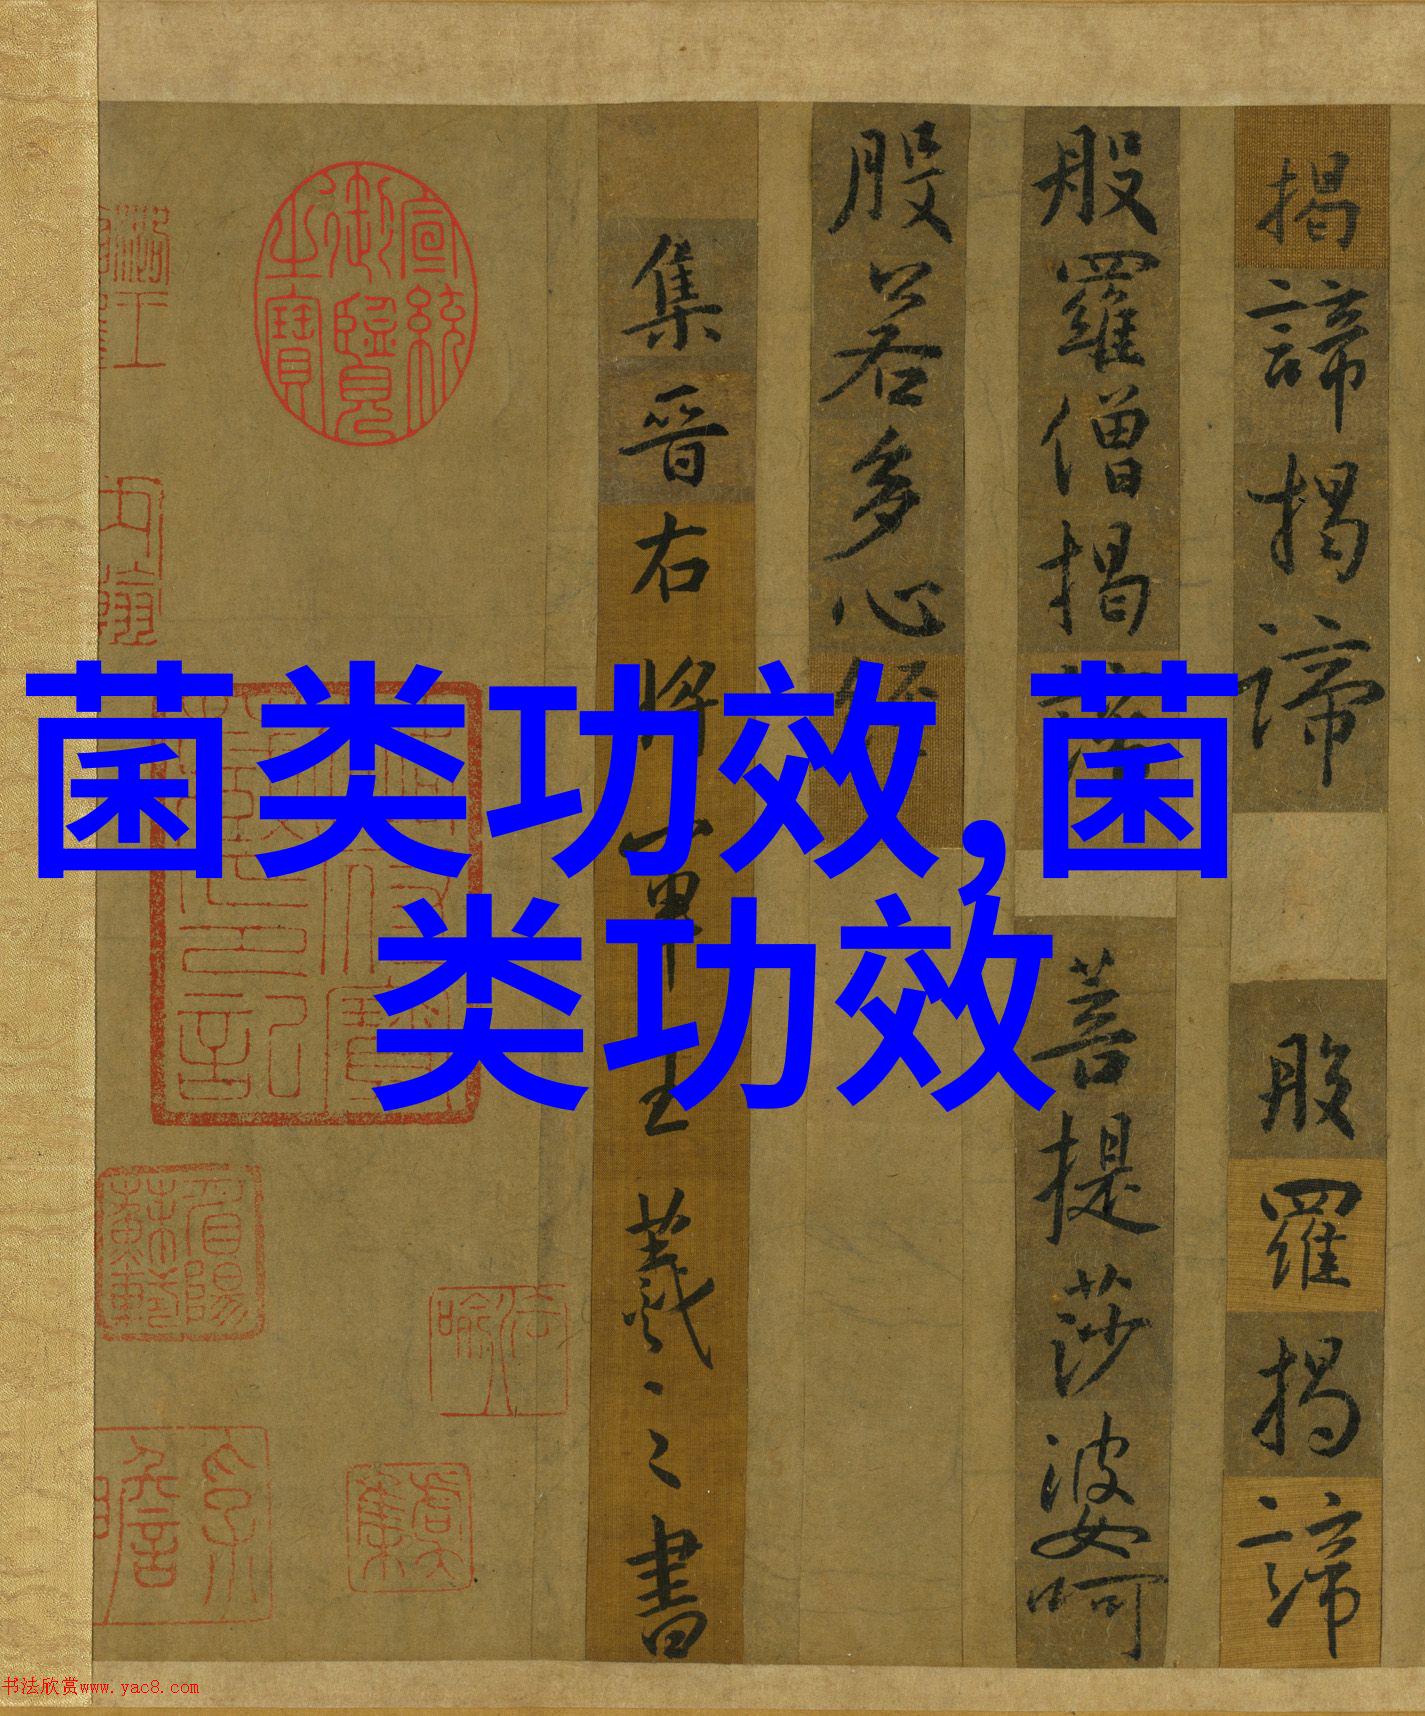 菌类功效,菌
类功效
揭諦揭諦 般羅揭諦
般羅僧揭諦 菩提莎婆呵
般若多心經
集晉右將軍王羲之書
宣統御覽之寶
书法欣赏www.yac8.com